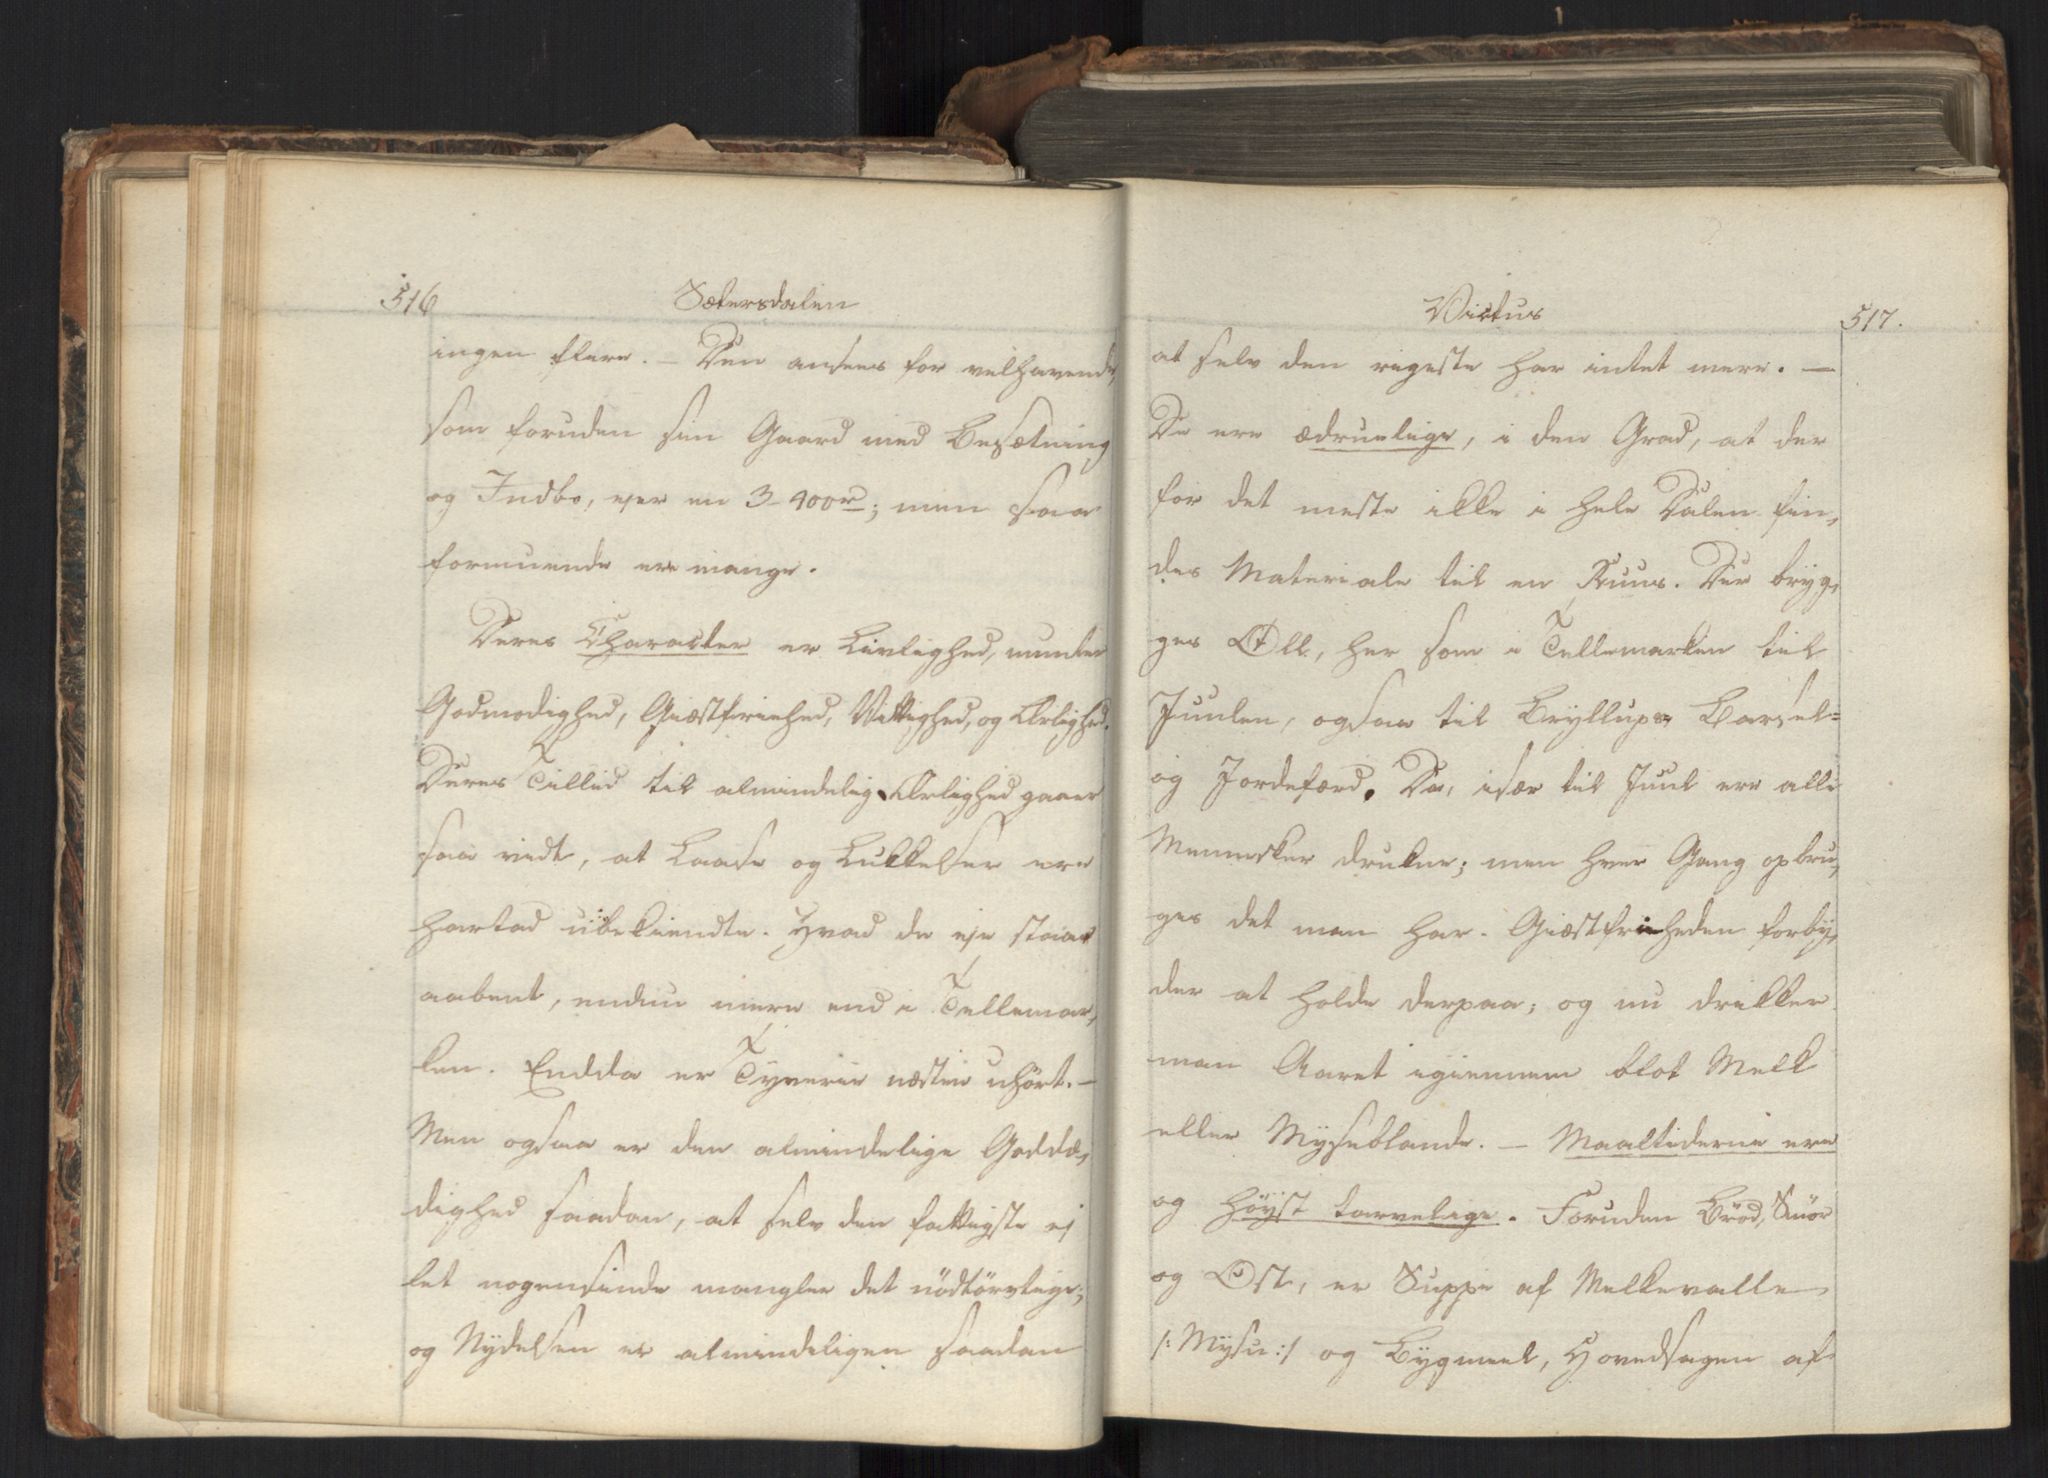 516
Sætersdalen
ingen flere. – Den ansees for velhavende,
som foruden sin Gaard med Besætning
og Indbo, ejer en 3-400rd; men saa
formuende ere mange.
Deres Character er Livlighed, munter
Godmodighed, Giæstfriehed, Vittighed, og Ærlighed.
Deres Tillid til almindelig Ærlighed gaaer
saa vidt, at Laase og Lukkelser ere
hartad ubekiendte. Hvad de eje staar
aabent, endnu mere end i Tellemar,
ken. Endda er Tyverie næsten uhört. –
Men ogsaa er den almindelige
dighed saadan, at selv den fattigste ej
let nogensinde mangler det nödtörvtige;
og Nydelsen er almindeligen saadan
Victus
517.
at selv den rigeste har intet mere. —
De ere ædruelige, i den Grad, at der
for det meste ikke i hele Dalen fin,
des Materiale til en Ruus. Der bryg,
ges Øll, her som i Tellemarken til
Juulen, ogsaa til Bryllups Barsel=
og Jordefærd. Da, især til Juul ere alle
Mennesker drukne; men hver Gang opbru,
ges det man har. Giæstfrieheden forby,
der at holde derpaa; og nu drikker
man Aaret igiennem blot Melk
eller Myseblande. – Maaltiderne ere
og höyst tarvelige. Foruden Bröd, Smör
og Ost, er Suppe af Melkevalle
/: Mysu :/ og Bygmeel, Hovedsagen af